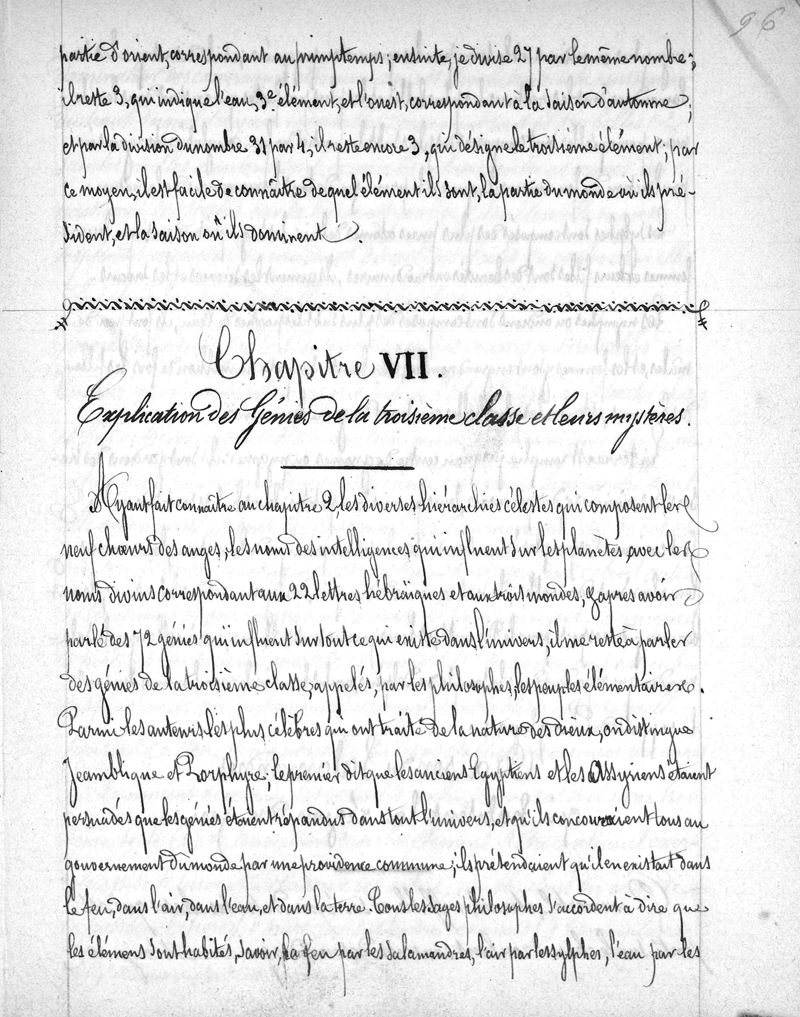 96
partie d'orient, correspondant au primptemps; ensuite, je divise 27 par le même nombre;
il reste 3, qui indique l'eau, 3e élément, et l'ouest, correspondant à la saison d'automne;
et par la division du nombre 31 par 4, il reste encore 3, qui désigne le troisième élément; par
ce moyen, il est facile de connaître de quel élément ils sont, la partie du monde où ils pré-
sident, et la saison où ils dominent.
Chapitre VII.
Explication des Génies de la troisième classe et leurs mystères.
Ayant fait connaître au chapitre 2, les diverses hiérarchies célestes qui composent les
neuf chœurs des anges, les noms des intelligences qui influent sur les planètes, avec les
noms divins correspondant aux 22 lettres hébraïques et aux trois mondes, & après avoir
parlé des 72 génies qui influent sur tout ce qui existe dans l'univers, il me reste à parler
des génies de la troisième classe, appelés, par les philosophes, les peuples élémentaires.
Parmi les auteurs les plus célèbres qui ont traité de la nature des dieux, on distingue
Jeamblique et Porphyre; le premier dit que les anciens Egyptiens et les Assyriens étaient
persuadés que les génies étoient répandus dans tout l'univers, et qu'ils concouraient tous au
gouvernement du monde par une providence commune; ils prétendaient qu'il en existait dans
le feu, dans l'air, dans l'eau, et dans la terre. Tous les sages philosophes s'accordent à dire que
les élémens sont habités, savoir, le feu par les salamandres, l'air par les sylphes, l'eau par les